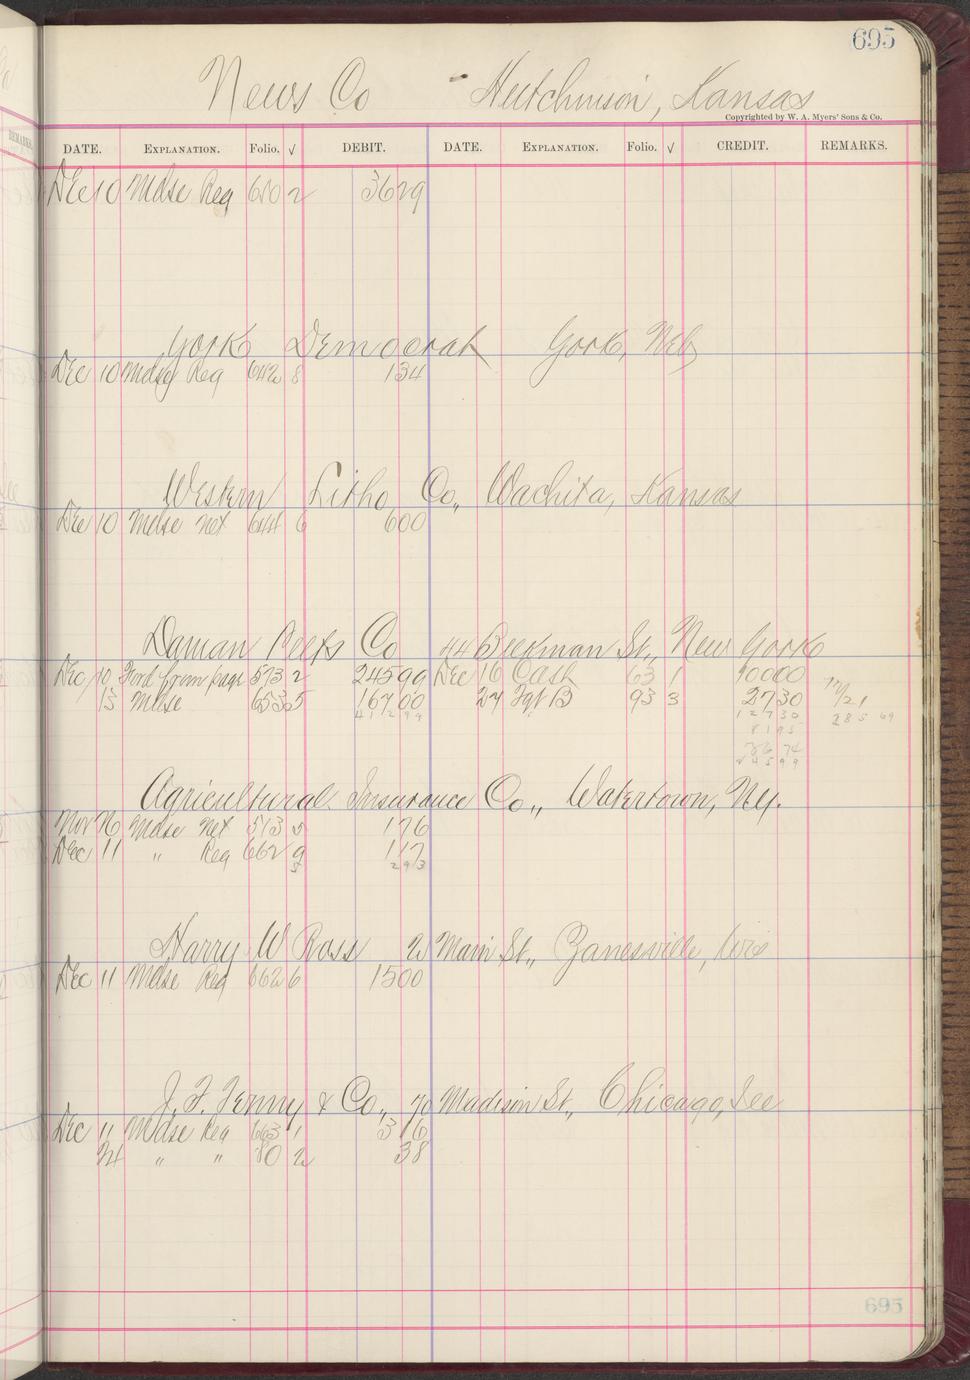 695
News Co - Hutchinson, Kansas
Copyrighted by W. A. Myers' Sons & Co.
DATE. EXPLANATION. Folio. √ DEBIT. DATE. EXPLANATION. Folio. √ CREDIT. REMARKS.
Dec 10 Mdse Reg 640 2 3629
York Democrat York, Neb
Dec 10 Mdse Reg 642 8 134
Western Litho Co., Wachita, Kansas
Dec 10 Mdse net 644 6 600
Daman Peets Co 44 Beekman St., New York
Dec 10 Ford from page 573 2 24599 Dec 16 Cash 63 1 10000
13 Mdse 653 5 16700 27 Fgt B 93 3 2730 12/21
41299 12730 28569
8195
7674
24599
Agricultural Insurance Co., Watertown, Ny.
Nov 16 Mdse Net 513 5 176
Dec 11 " Reg 662 9 117
5 293
Harry W Ross 2 Main St., Zanesville, Wis
Dec 11 Mdse Reg 662 6 1500
J. F. Fenny & Co., 70 Madison St., Chicago, Ill
Dec 11 Mdse Reg 663 1 316
24 " " 80 2 38
695